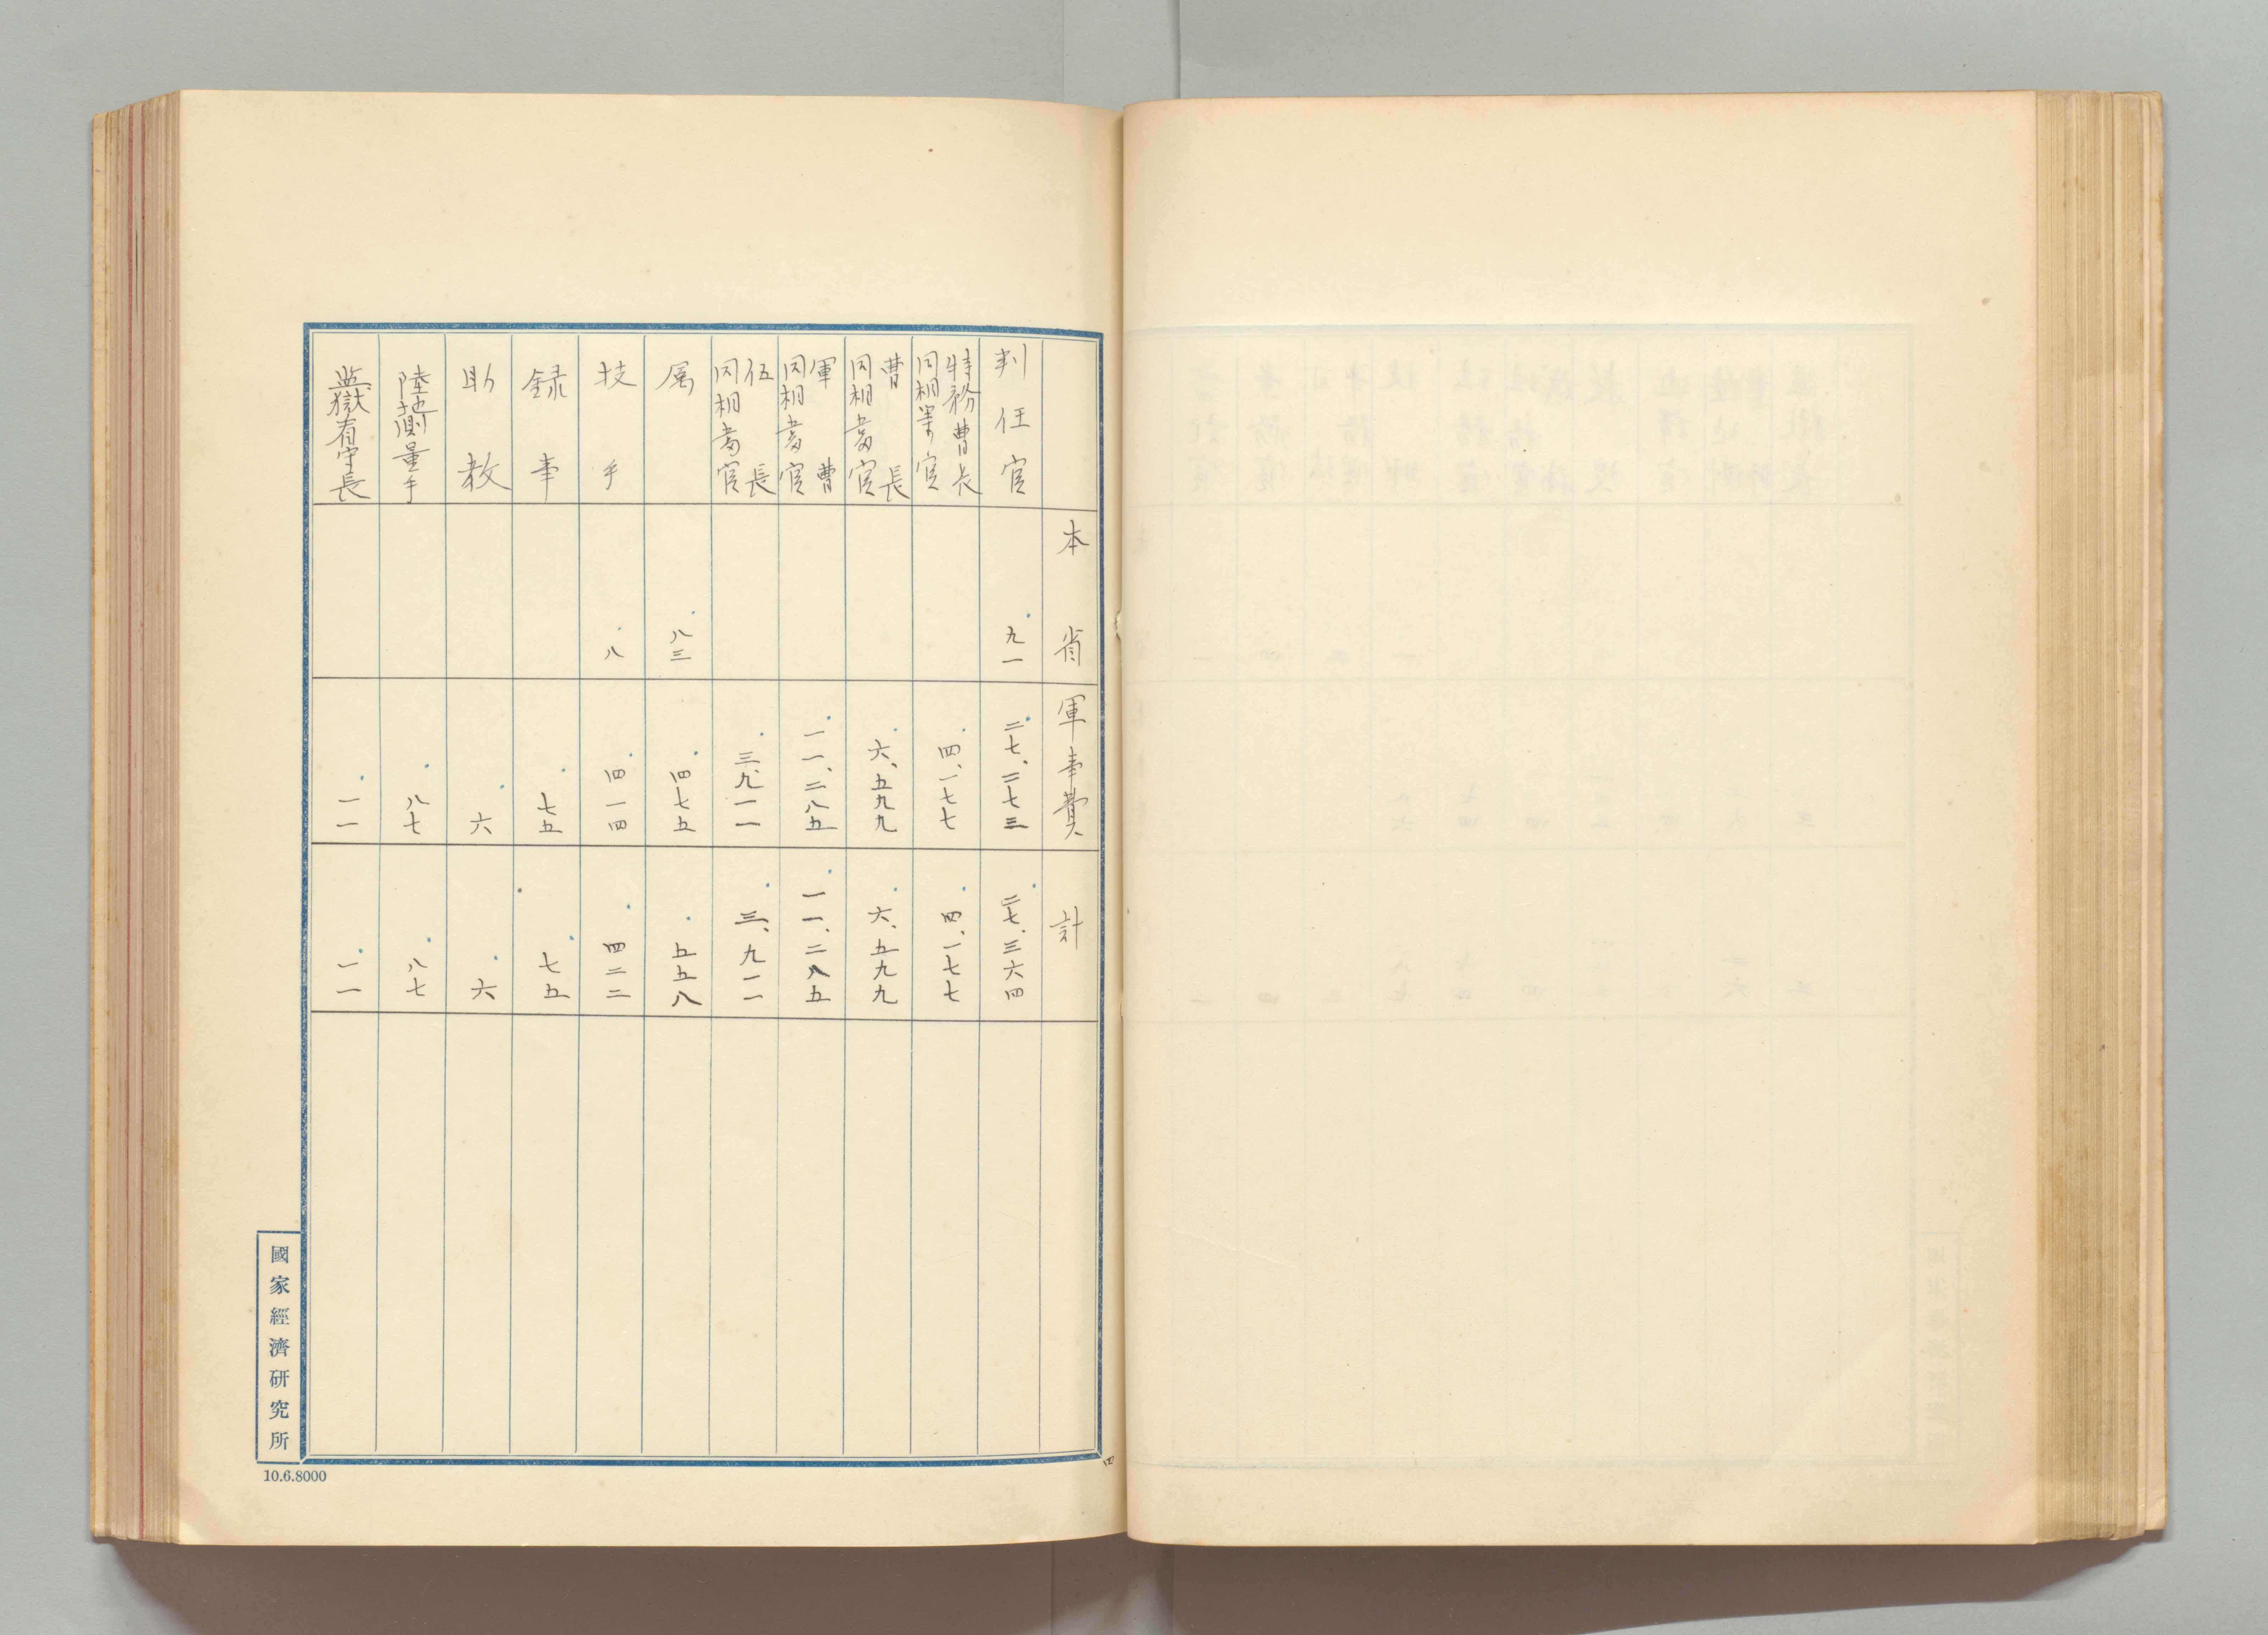 本省 軍事費 計
判任官 九一 二七、二七三 二七、三六四
特務曹長
同相等官 四、一七七 四、一七七
曹長
同相当官 六、五九九 六、五九九
軍曹
同相当官 一一、二八五 一一、二八五
伍長
同相当官 三、九一一 三、九一一
属 八三 四七五 五五八
技手 八 四一四 四二二
録事 七五 七五
助教 六 六
陸地測量手 八七 八七
監獄看守長 一一 一一
國家經濟研究所
10.6.8000
四